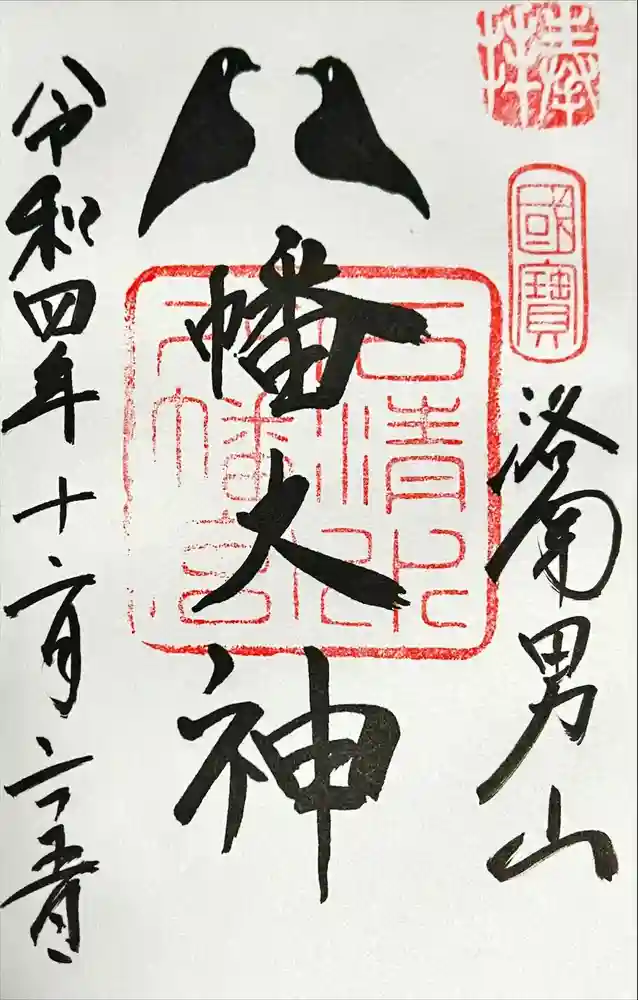 奉拝
國寶
洛南男山
八幡大神
石清水
八幡宮
令和四年十二月二十五日